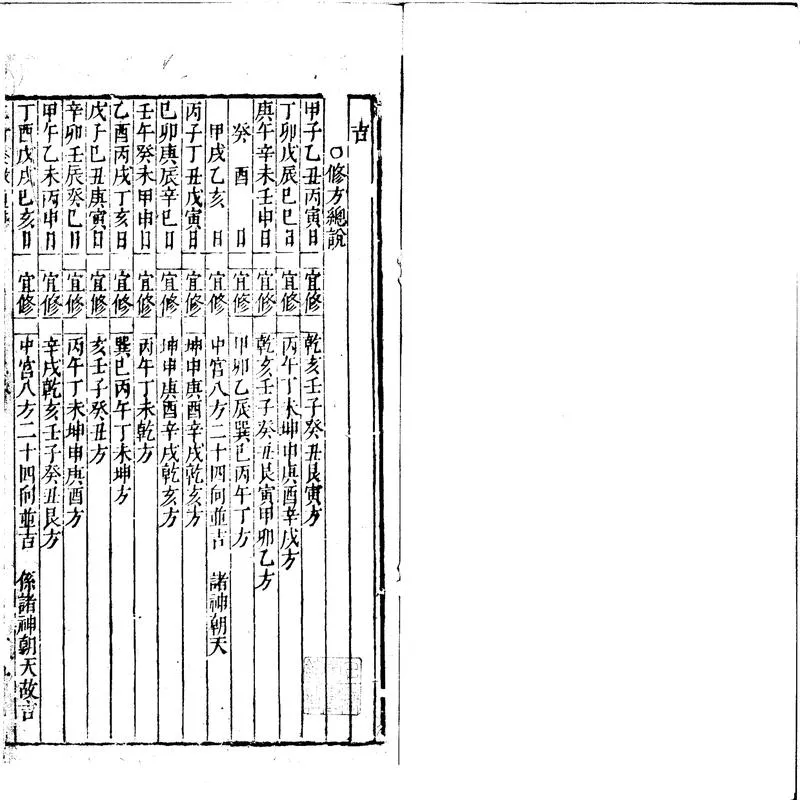 吉
○修方總說
甲子乙丑丙寅日 宜修 乾亥壬子癸丑艮寅方
丁卯戊辰巳巳日 宜修 丙午丁未坤申庚酉辛戌方
庚午辛未壬申日 宜修 乾亥壬子癸丑艮寅甲卯乙方
癸酉日 宜修 甲卯乙辰巽巳丙午丁方
甲戌乙亥日 宜修 中宮八方二十四向並吉 諸神朝天
丙子丁丑戊寅日 宜修 坤申庚酉辛戌乾亥方
巳卯庚辰辛巳日 宜修 坤申庚酉辛戌乾亥方
壬午癸未甲申日 宜修 丙午丁未乾方
乙酉丙戌丁亥日 宜修 巽巳丙午丁未坤方
戊子巳丑庚寅日 宜修 亥壬子癸丑方
辛卯壬辰癸巳日 宜修 丙午丁未坤申庚酉方
甲午乙未丙申日 宜修 辛戌乾亥壬子癸丑艮方
丁酉戊戌巳亥日 宜修 中宮八方二十四向並吉 係諸神朝天故吉